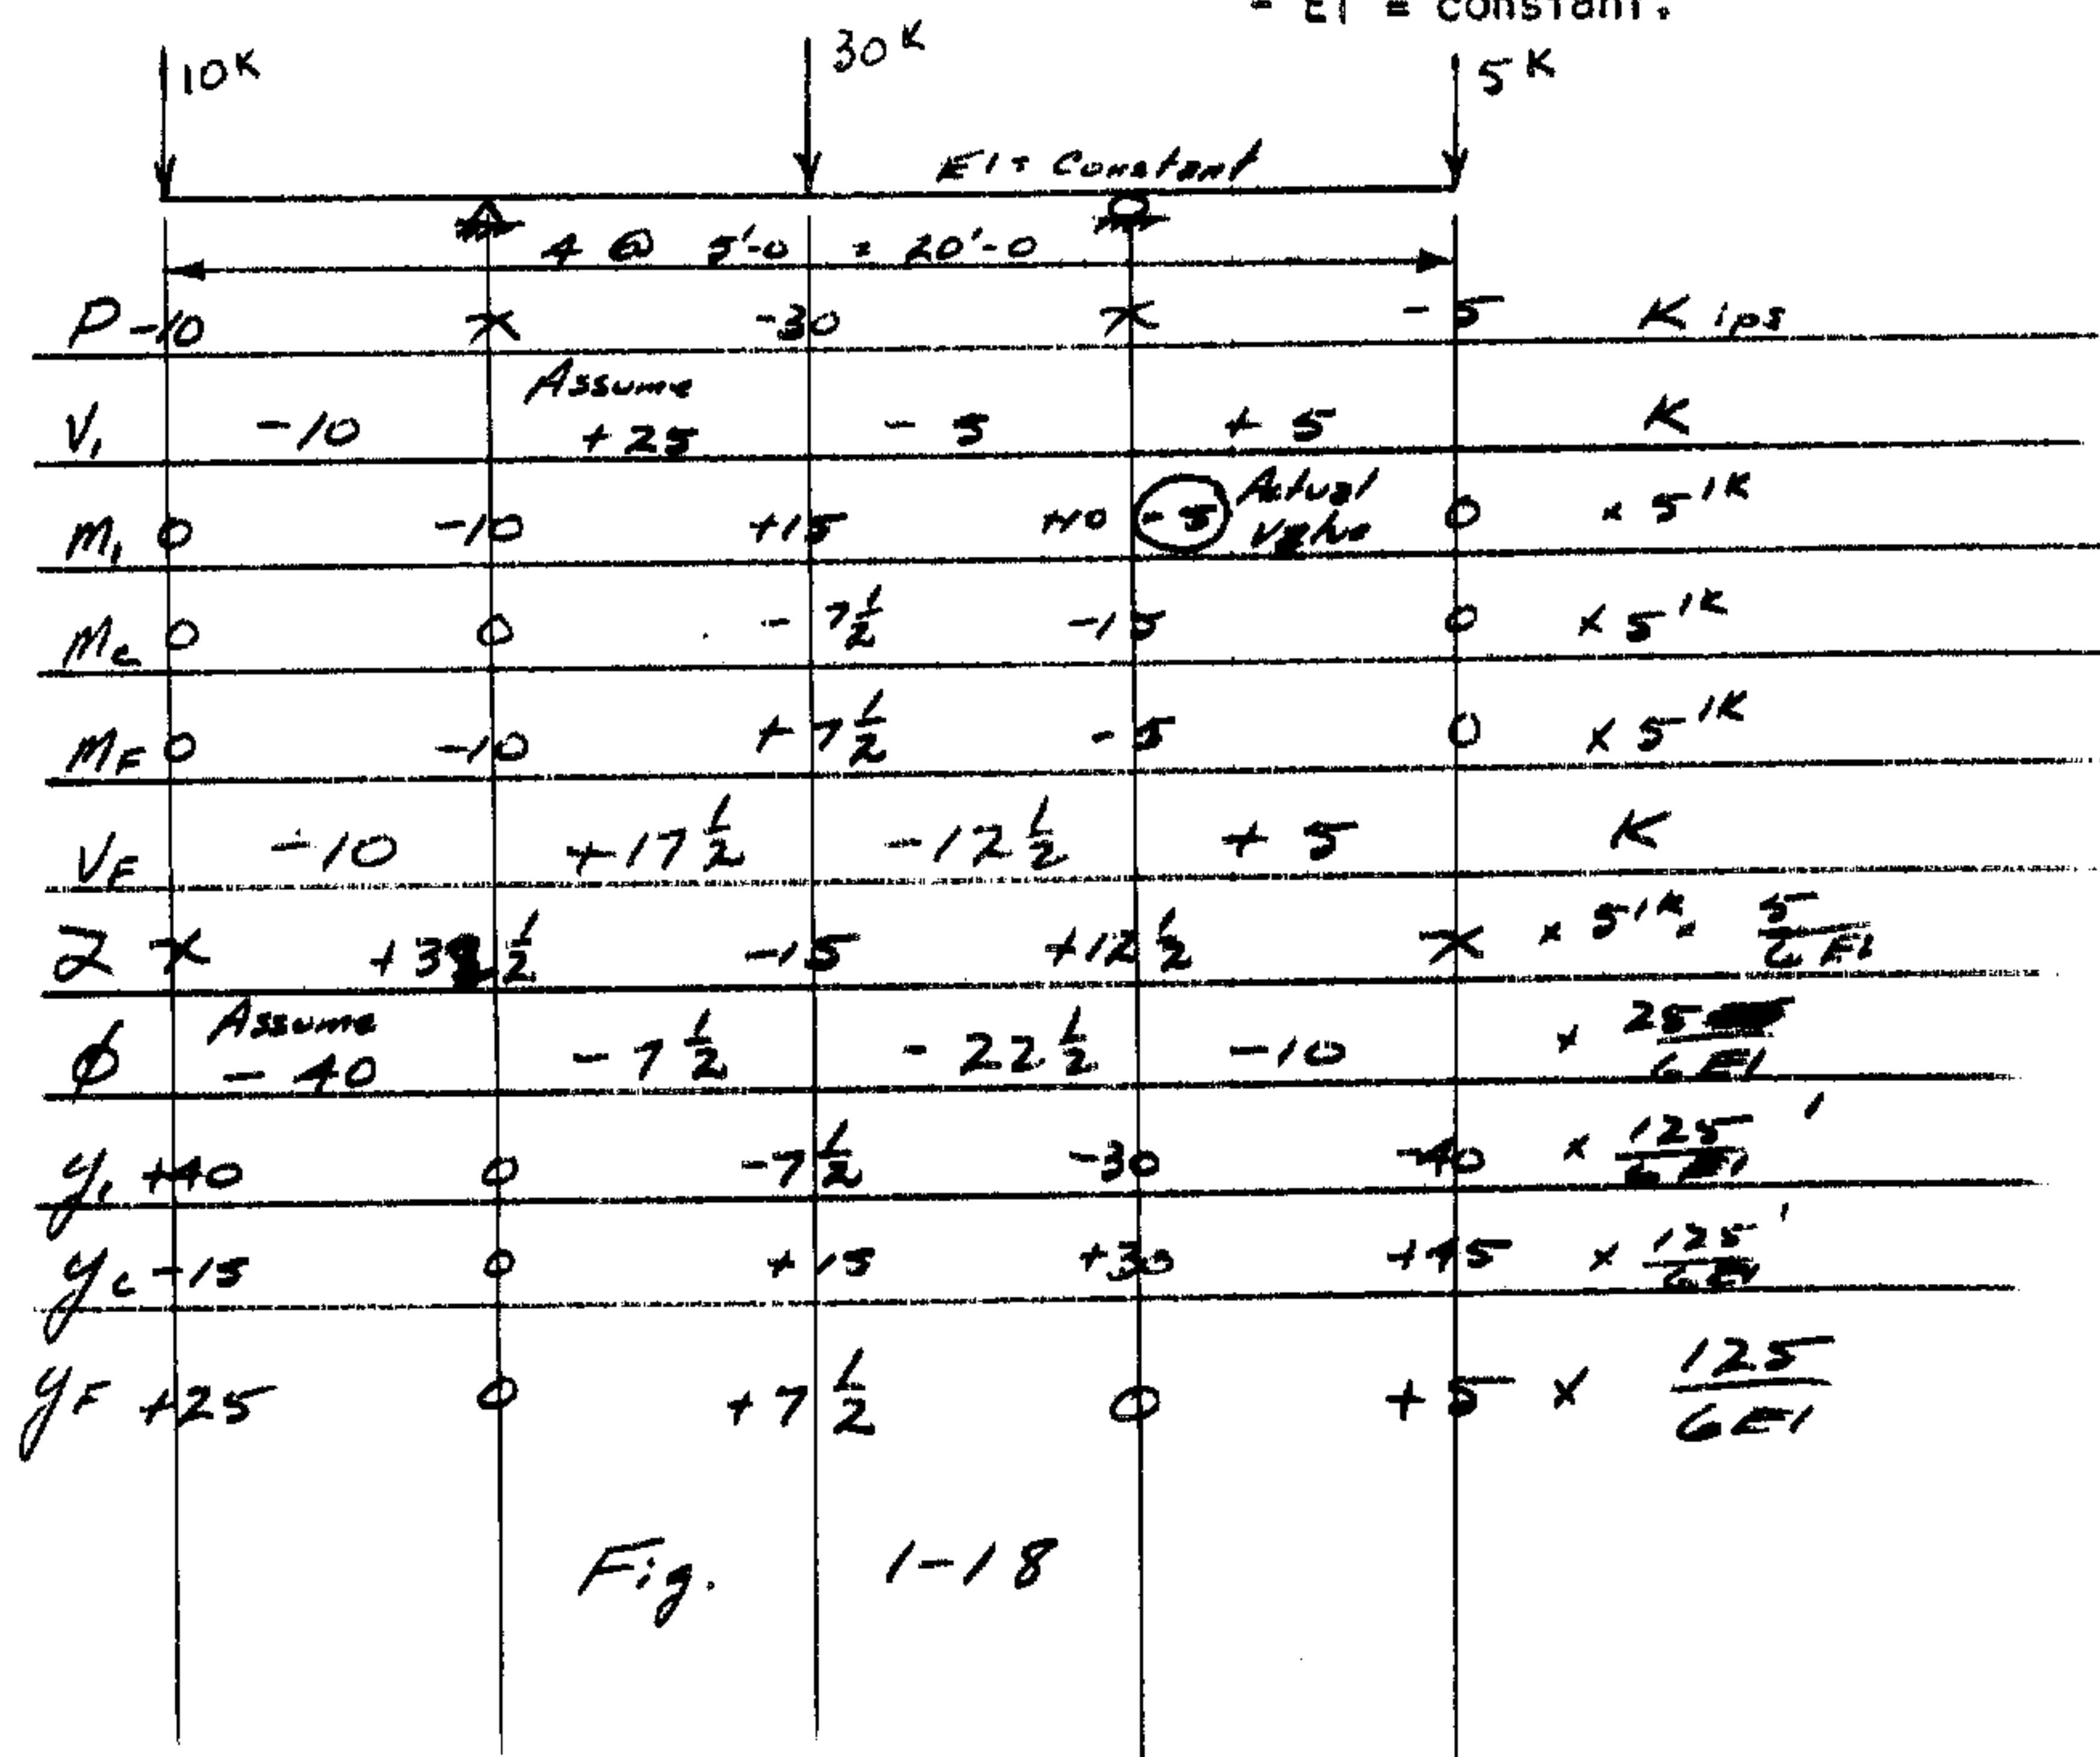 - EI = constant.
10K 30K 5K
EI = Constant
4 @ 5'-0 = 20'-0
P -10 x -30 x -5 Kips
Assume
V₁ -10 +25 -5 +5 K
M₁ 0 -10 +15 +10 -5 Actual Value 0 x 5'K
Mc 0 0 -7½ -15 0 x 5'K
MF 0 -10 +7½ -5 0 x 5'K
VF -10 +17½ -12½ +5 K
Z x +32½ -15 +12½ x x 5'K x 5/6EI
Assume
φ -40 -7½ -22½ -10 x 25/6EI
y₁ +40 0 -7½ -30 -40 x 125/6EI '
yc -15 0 +15 +30 +45 x 125/6EI '
yF +25 0 +7½ 0 +5 x 125/6EI
Fig. 1-18